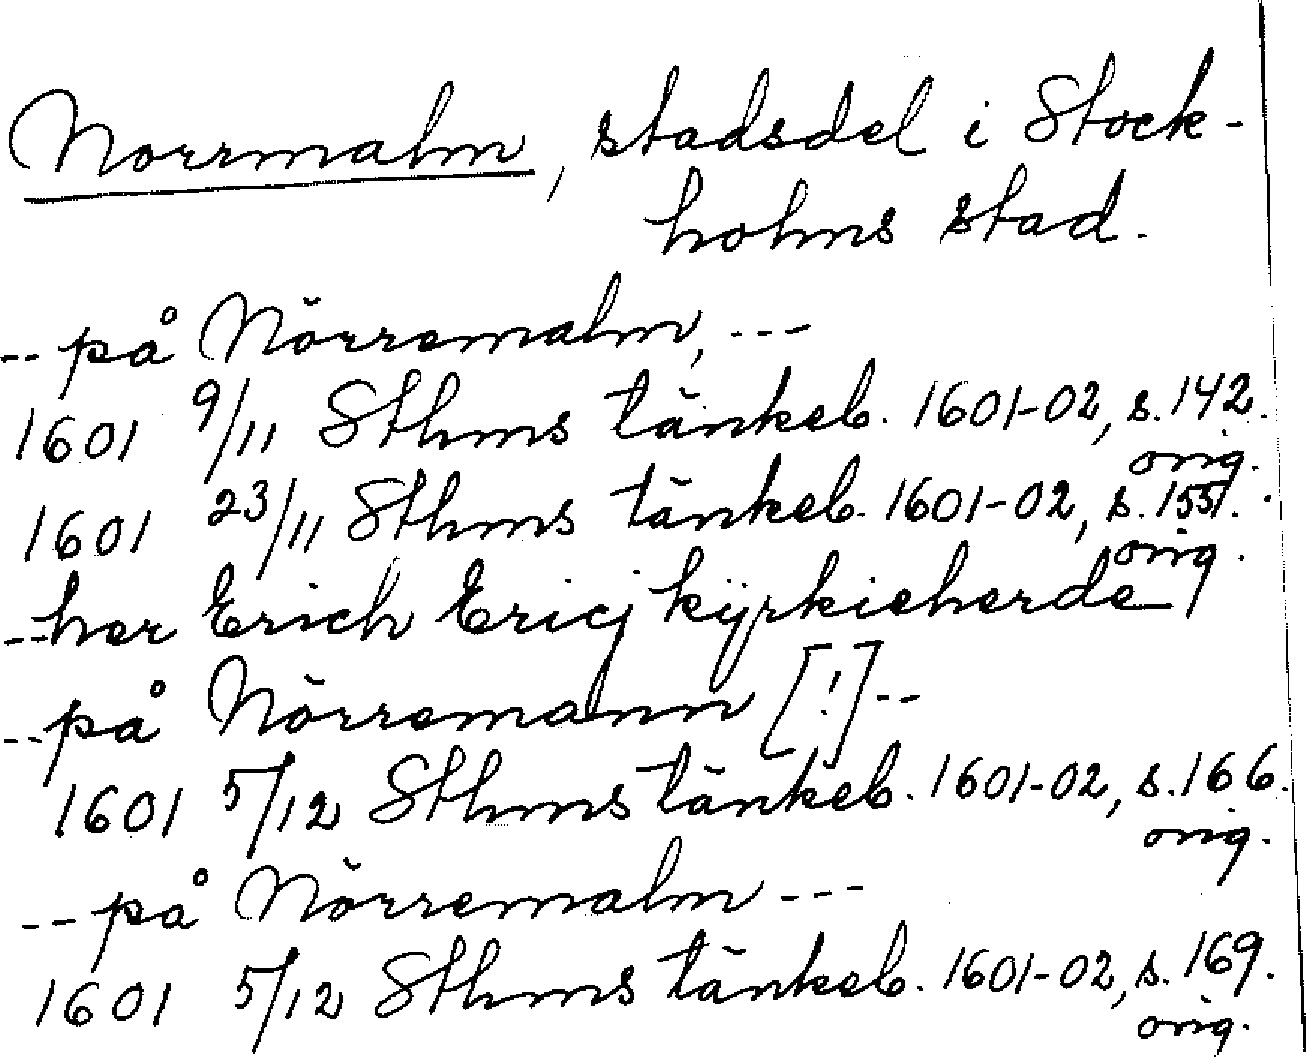 Norrmalm, stadsdel i Stock-
holms stad.
-- på Nörremalm, ---
1601 9/11 Sthms tänkeb. 1601-02, s. 142.
orig.
1601 23/11 Sthms tänkeb. 1601-02, s. 151.
orig.
-- her Erich Ericj kÿrkieherde
-- på Nörremann [!] --
1601 5/12 Sthms tänkeb. 1601-02, s. 166.
orig.
-- på Nörremalm ---
1601 5/12 Sthms tänkeb. 1601-02, s. 169.
orig.